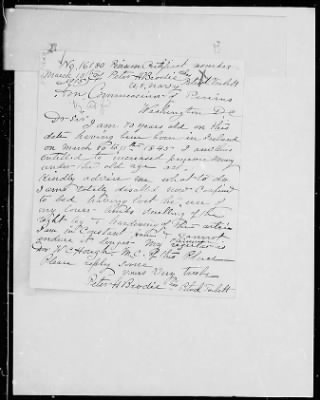 No. 16180 Pension Certificate number
March 10th 1915 Peter A Brodie
U.S. Navy
Hon Commissioner of Pensions
Washington D.C.
Dr Sir
I am 70 years old on this
date having been born in Ireland
on March 10th 1845 I am
entitled to increased pension money
under the old age act
Kindly advise me what to do
I am totally disabled now confined
to bed having lost the use of
my lower limbs swelling of the
right leg & hardening of the arteries
I am in Constant and cannot
endure it longer My
Dr H C Houghton M.C. of this Place
Please reply soon
yours Very truly
Peter A Brodie